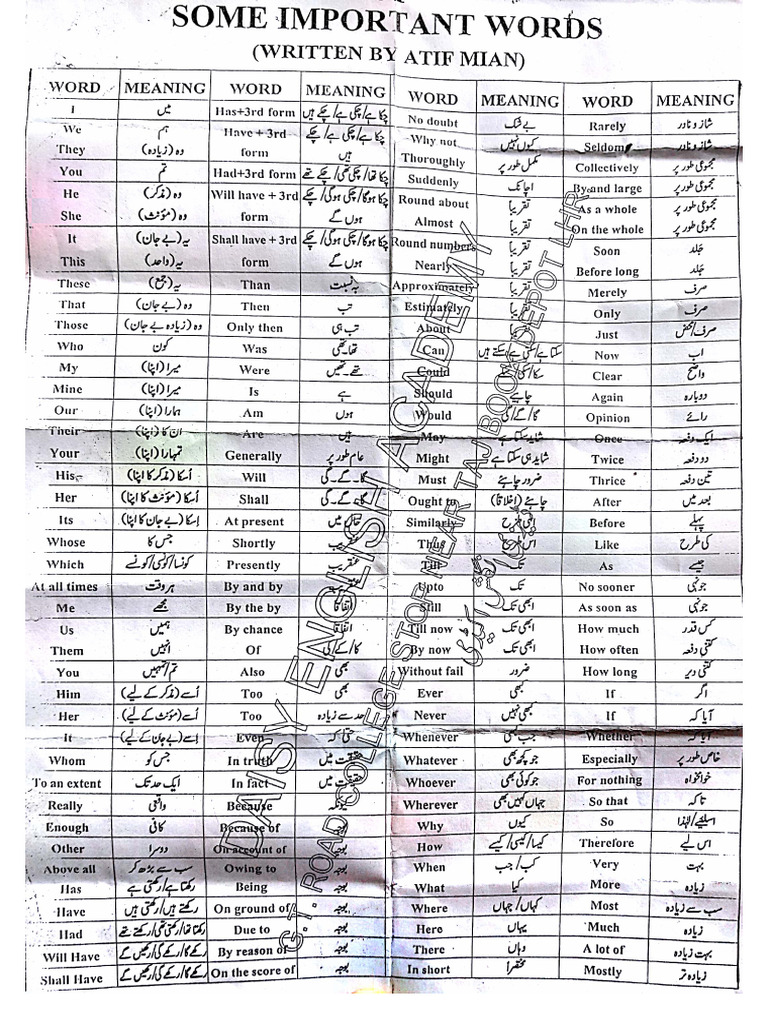 SOME IMPORTANT WORDS
(WRITTEN BY ATIF MIAN)
WORD MEANING WORD MEANING WORD MEANING WORD MEANING
I میں Has+3rd form چکا ہے/چکی ہے/چکے ہیں No doubt بے شک Rarely شاز و نادر
We ہم Have + 3rd چکا ہے/چکی ہے/چکے Why not کیوں نہیں Seldom شاز و نادر
They وہ (زیادہ) form ہیں Thoroughly مکمل طور پر Collectively مجموعی طور پر
You تم Had+3rd form چکا تھا/چکی تھی/چکے تھے Suddenly اچانک By and large مجموعی طور پر
He وہ (مذکر) Will have + 3rd چکا ہوگا/چکی ہوگی/چکے Round about تقریباً As a whole مجموعی طور پر
She وہ (مؤنث) form ہوں گے Almost تقریباً On the whole مجموعی طور پر
It یہ (بے جان) Shall have + 3rd چکا ہوگا/چکی ہوگی/چکے Round numbers تقریباً Soon جلد
This یہ (واحد) form ہوں گے Nearly تقریباً Before long جلد
These یہ (جمع) Than بہ نسبت Approximately تقریباً Merely صرف
That وہ (بے جان) Then تب Estimately تقریباً Only صرف
Those وہ (زیادہ بے جان) Only then تب ہی About تقریباً Just صرف/محض
Who کون Was تھا۔تھی Can سکتا ہے/سکتی ہے/سکتے ہیں Now اب
My میرا (اپنا) Were تھے۔تھیں Could Clear واضح
Mine میرا (اپنا) Is ہے Should چاہیے Again دوبارہ
Our ہمارا (اپنا) Am ہوں Would گا/گے/گی Opinion رائے
Their ان کا (اپنا) Are ہیں May شاید سکتا ہے Once ایک دفعہ
Your تمہارا (اپنا) Generally عام طور پر Might شاید ہی سکتا ہے Twice دو دفعہ
His اُسکا (مذکر کا اپنا) Will گا۔گے۔گی Must ضرور چاہئے Thrice تین دفعہ
Her اُسکا (مؤنث کا اپنا) Shall گا۔گے۔گی Ought to چاہئے (اخلاقاً) After بعد میں
Its اِسکا (بے جان کا اپنا) At present Similarly Before پہلے
Whose جس کا Shortly Thus اس طرح Like کی طرح
Which کونسا/کونسی/کونسے Presently عنقریب Till تک As جیسے
At all times ہر وقت By and by Upto تک No sooner جونہی
Me مجھے By the by اتفاقاً Still ابھی تک As soon as جونہی
Us ہمیں By chance اتفاقاً Till now ابھی تک How much کس قدر
Them انہیں Of کا/کے/کی By now ابھی تک How often کتنی دفعہ
You تم/تمہیں Also بھی Without fail ضرور How long کتنی دیر
Him اُسے (مذکر کے لیے) Too بھی Ever کبھی If اگر
Her اُسے (مؤنث کے لیے) Too حد سے زیادہ Never کبھی نہیں If آیا کہ
It اِسے (بے جان کے لیے) Even حتیٰ کہ Whenever جب بھی Whether آیا کہ
Whom جس کو In truth حقیقت میں Whatever جو کچھ بھی Especially خاص طور پر
To an extent ایک حد تک In fact حقیقت میں Whoever جو کوئی بھی For nothing خوامخواہ
Really واقعی Because کیونکہ Wherever جہاں کہیں بھی So that تاکہ
Enough کافی Because of بوجہ Why کیوں So اسلیئے/لہٰذا
Other دوسرا On account of بوجہ How کیسا/کیسی/کیسے Therefore اس لیے
Above all سب سے بڑھ کر Owing to بوجہ When کب/جب Very بہت
Has رکھتا ہے/رکھتی ہے Being بوجہ What کیا More زیادہ
Have رکھتے ہیں/رکھتی ہیں On ground of بوجہ Where کہاں/جہاں Most سب سے زیادہ
Had رکھتا تھا/رکھتی تھی/رکھتے تھے Due to بوجہ Here یہاں Much زیادہ
Will Have رکھے گا/رکھے گی/رکھیں گے By reason of بوجہ There وہاں A lot of بہت زیادہ
Shall Have رکھے گا/رکھے گی/رکھیں گے On the score of بوجہ In short مختصراً Mostly زیادہ تر
DAISY ENGLISH ACADEMY
G.T. ROAD COLLEGE STOP NEAR TAJ BOOK DEPOT LHR